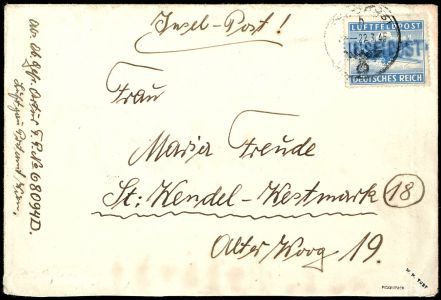 Insel-Post!
LUFTFELDPOST
INSELPOST
DEUTSCHES REICH
Frau
Maria Freude
St: Wendel-Westmark
18
Alter Woog 19.
Abs. Ob. Gefr. Artur F. P. No 68094D.
Luftgau Postamt, Wien.